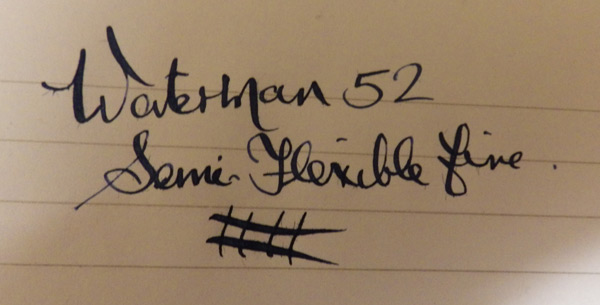 Waterman 52
Semi-Flexible fine.